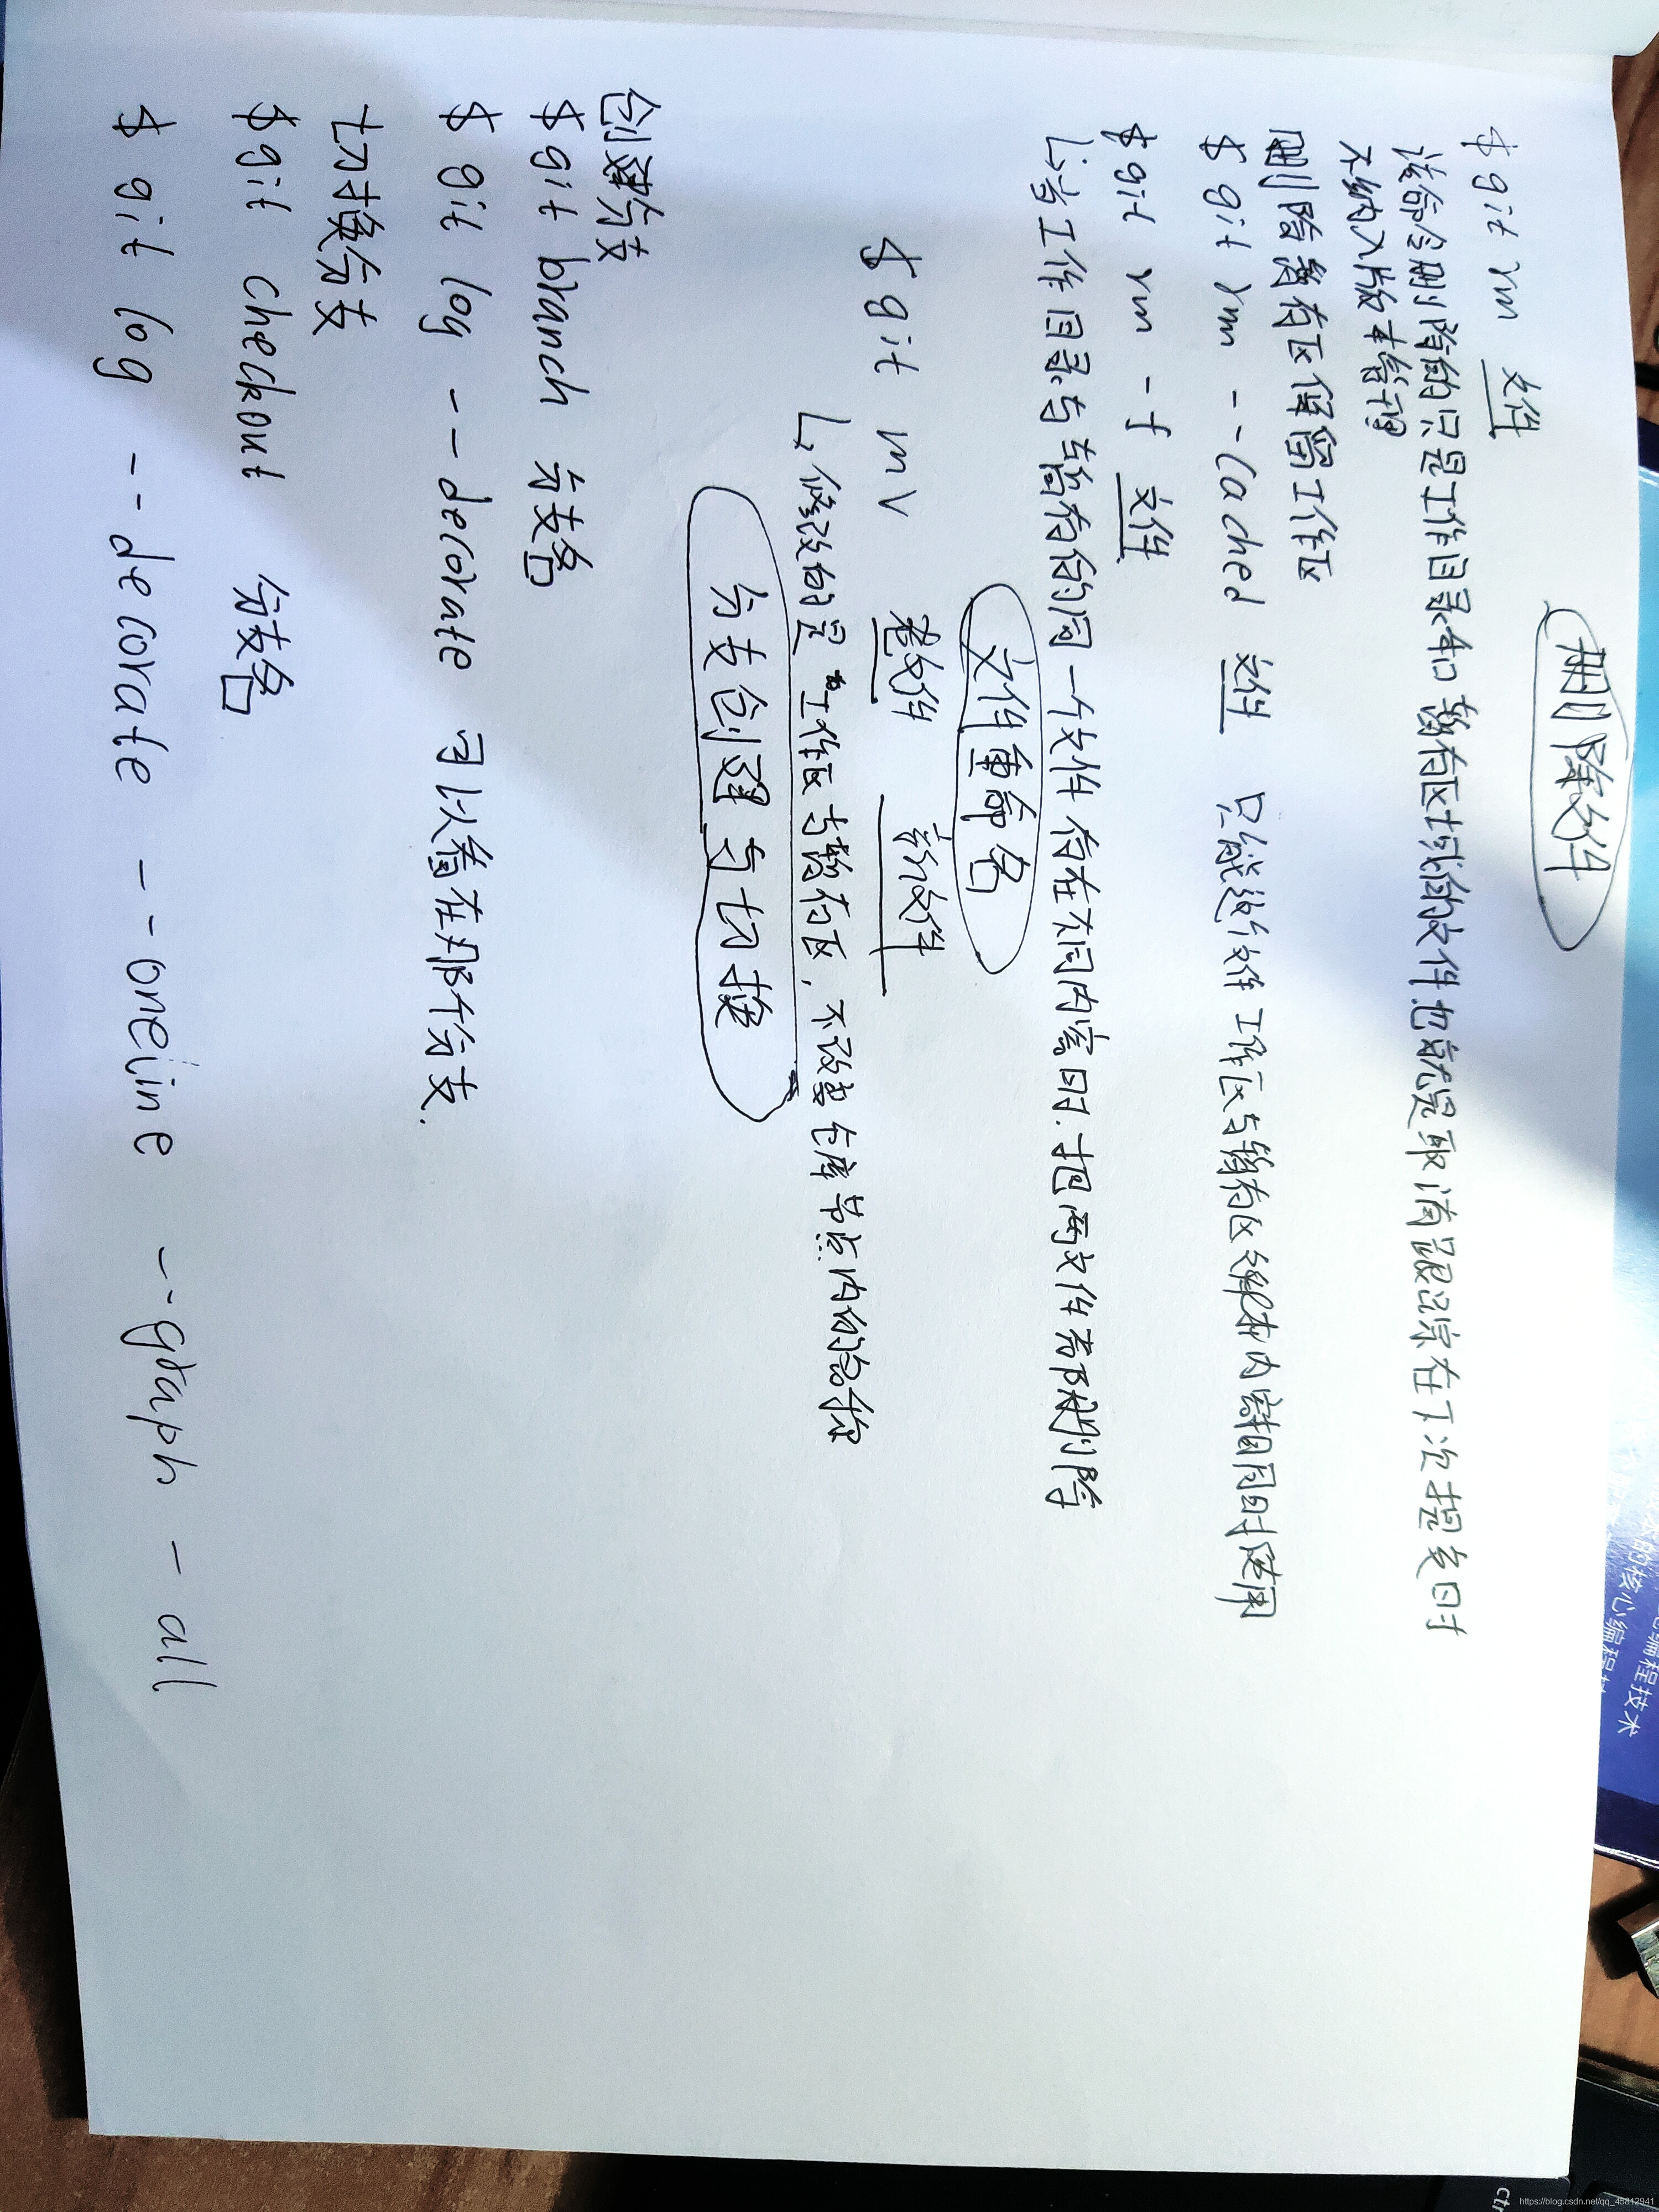 删除文件
$ git rm 文件
该命令删除的只是工作目录和暂存区域的文件也就是取消跟踪在下次提交时
不纳入版本管理
删除暂存区保留工作区
$ git rm --cached 文件 只能这个文件工作区与暂存区 内容相同时使用
$ git rm -f 文件
当工作目录与暂存的同一个文件存在不同内容时.把两文件都删除
文件重命名
$ git mv 老文件 新文件
修改的是 工作区与暂存区, 不改变仓库节点内的名称
分支创建与切换
创建分支
$ git branch 分支名
$ git log --decorate 可以看在那个分支.
切换分支
$ git checkout 分支名
$ git log --decorate --oneline --graph -all
编程技术
的核心编程
ctrl
https://blog.csdn.net/qq_45812941